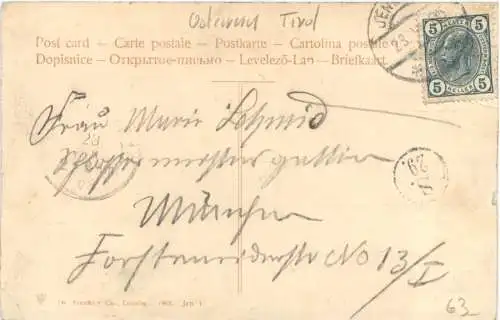 Österreich Tirol
Post card – Carte postale – Postkarte – Cartolina postale
Dopisnice – Открытое-письмо – Levelező-Lap – Briefkaart
JEN
5 5
HELLER
5 5
Frau Marie Schmid
Schlossermeistersgattin
29
München
Forstenriederstr No 13/I
63